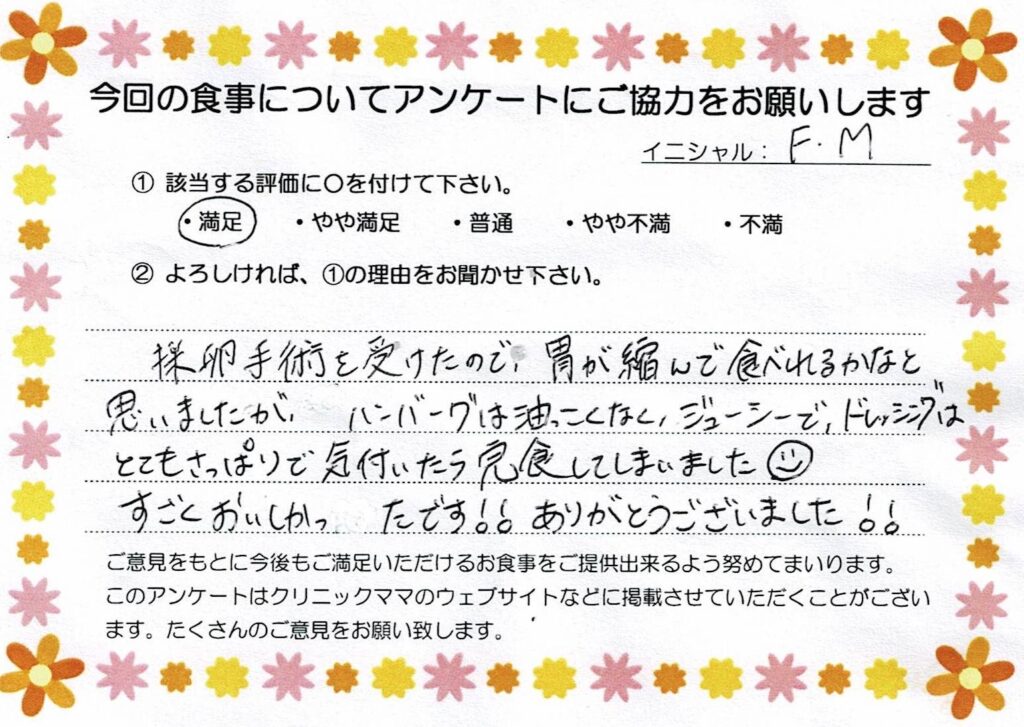 今回の食事についてアンケートにご協力をお願いします
イニシャル： F.M
① 該当する評価に〇を付けて下さい。
・満足 ・やや満足 ・普通 ・やや不満 ・不満
② よろしければ、①の理由をお聞かせ下さい。
採卵手術を受けたので、胃が縮んで食べれるかなと
思いましたが、 ハンバーグは油っこくなく、ジューシーで、ドレッシングは
とてもさっぱりで気付いたら完食してしまいました☺
すごくおいしかっ たです!! ありがとうございました!!
ご意見をもとに今後もご満足いただけるお食事をご提供出来るよう努めてまいります。
このアンケートはクリニックママのウェブサイトなどに掲載させていただくことがござい
ます。たくさんのご意見をお願い致します。